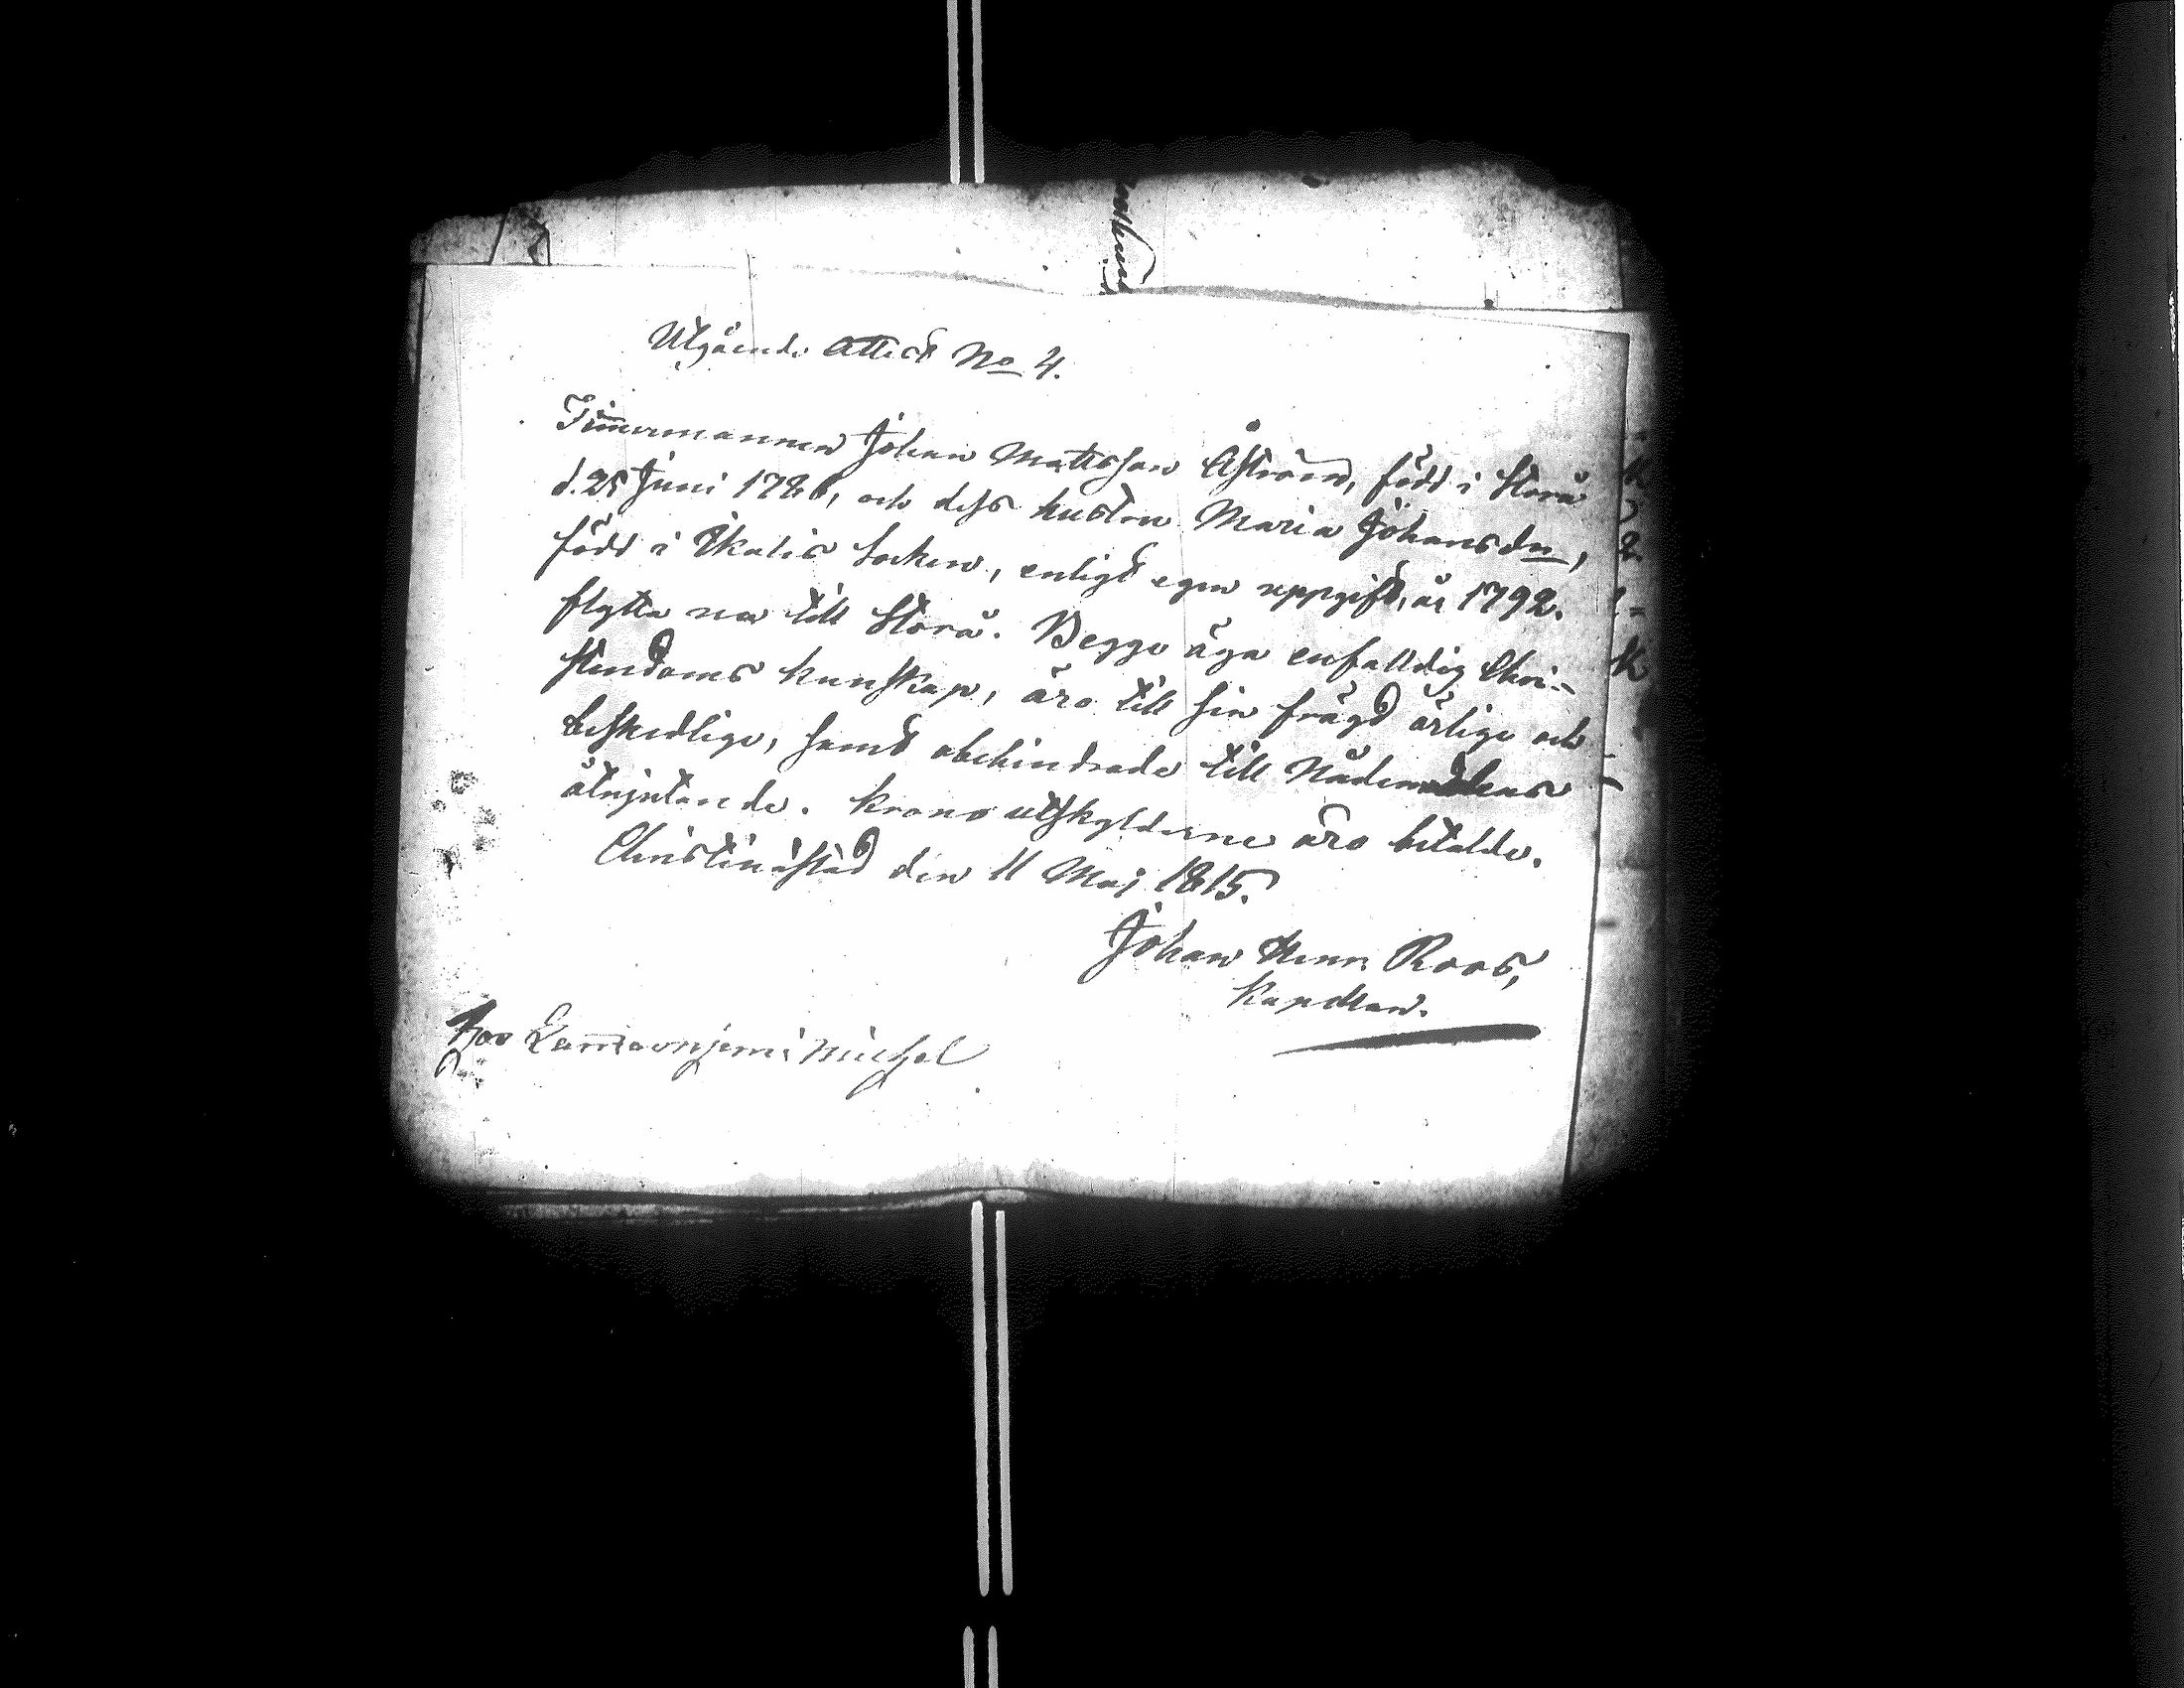 Utgående Attest No 4.
Timmermannen Johan Mattsson Åström, född i Storå
d. 25 Juni 178, och dess hustru Maria Johansdr,
född i Ikalis Socken, enligt egen uppgift, år 1792.
flytta nu till Storå. Begge äga enfalldig Chri-
stendoms kunskap, äro till sin frägd ärlige och
beskedlige, samt obehindrade till Nådemedlens
åtnjutande. Krono utskylderne äro betalde.
Christinæstad den 11 Maj 1815.
Johan Henr. Roos,
Kapellan.
hos